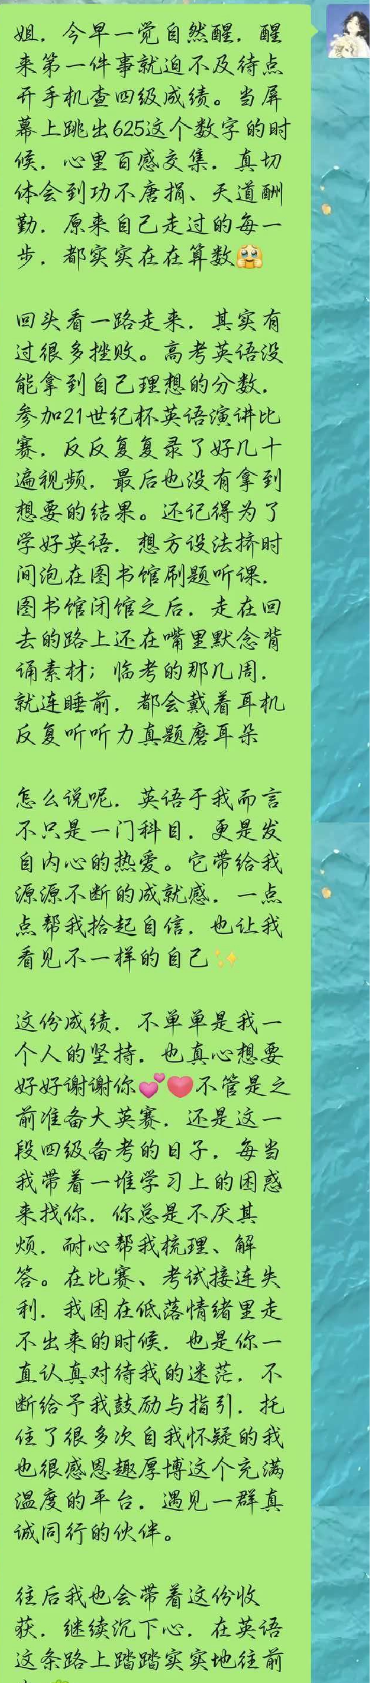 姐，今早一觉自然醒，醒
来第一件事就迫不及待点
开手机查四级成绩。当屏
幕上跳出625这个数字的时
候，心里百感交集，真切
体会到功不唐捐、天道酬
勤，原来自己走过的每一
步，都实实在在算数🥹
回头看一路走来，其实有
过很多挫败。高考英语没
能拿到自己理想的分数，
参加21世纪杯英语演讲比
赛，反反复复录了好几十
遍视频，最后也没有拿到
想要的结果。还记得为了
学好英语，想方设法挤时
间泡在图书馆刷题听课，
图书馆闭馆之后，走在回
去的路上还在嘴里默念背
诵素材；临考的那几周，
就连睡前，都会戴着耳机
反复听听力真题磨耳朵
怎么说呢，英语于我而言
不只是一门科目，更是发
自内心的热爱。它带给我
源源不断的成就感，一点
点帮我拾起自信，也让我
看见不一样的自己✨
这份成绩，不单单是我一
个人的坚持，也真心想要
好好谢谢你💕❤️不管是之
前准备大英赛，还是这一
段四级备考的日子，每当
我带着一堆学习上的困惑
来找你，你总是不厌其
烦，耐心帮我梳理、解
答。在比赛、考试接连失
利，我困在低落情绪里走
不出来的时候，也是你一
直认真对待我的迷茫，不
断给予我鼓励与指引，托
住了很多次自我怀疑的我
也很感恩趣厚博这个充满
温度的平台，遇见一群真
诚同行的伙伴。
往后我也会带着这份收
获，继续沉下心，在英语
这条路上踏踏实实地往前